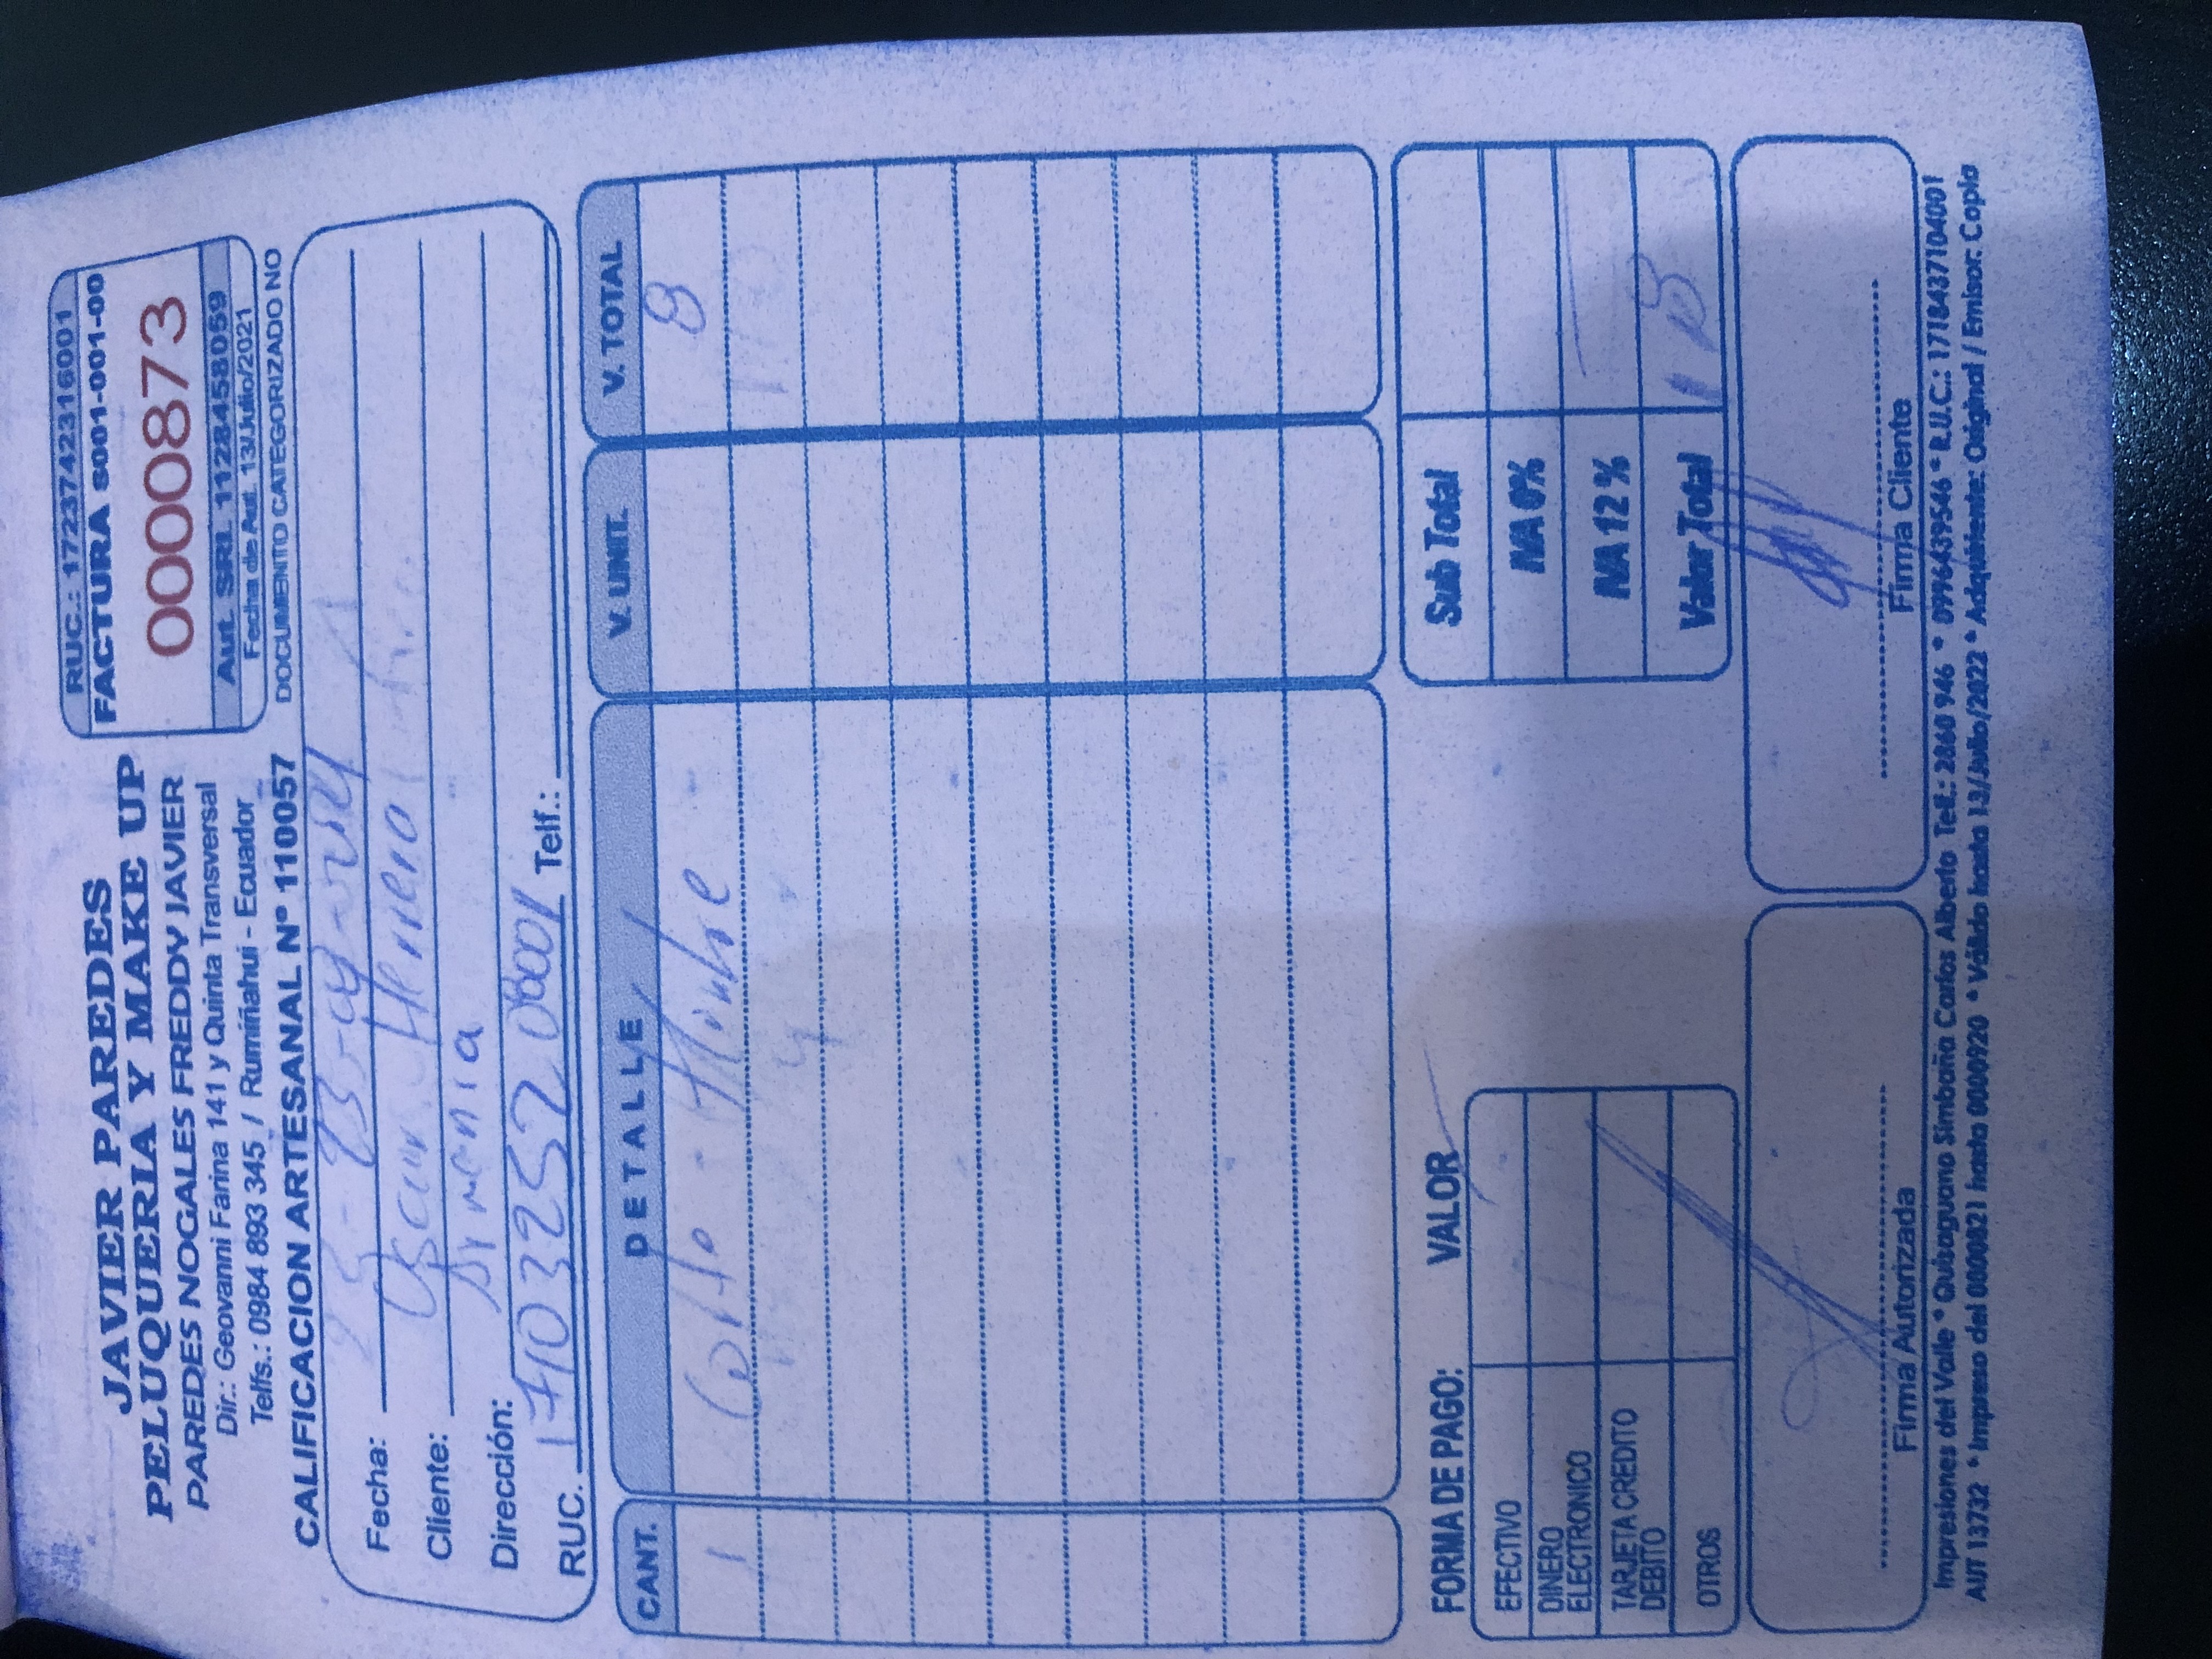 JAVIER PAREDES
PELUQUERIA Y MAKE UP
PAREDES NOGALES FREDDY JAVIER
Dir.: Geovanni Farina 141 y Quinta Transversal
Telfs.: 0984 893 345 / Rumiñahui - Ecuador
CALIFICACION ARTESANAL Nº 110057
RUC.: 1723742316001
FACTURA S001-001-00
0000873
Aut. SRI. 1128458059
Fecha de Aut. 13/Julio/2021
DOCUMENTO CATEGORIZADO NO
Fecha:
Cliente: Oscar Herrera
Dirección: Armenia
RUC. 1710325208001 Telf.:
CANT. DETALLE V. UNIT. V. TOTAL
1 Corte - Hombre 8
FORMA DE PAGO: VALOR
EFECTIVO
DINERO ELECTRONICO
TARJETA CREDITO DEBITO
OTROS
Sub Total
IVA 0%
IVA 12 %
Valor Total
Firma Autorizada
Firma Cliente
Impresiones del Valle * Quisaguano Simbaña Carlos Alberto Telf.: 2860 946 * 0996439546 * R.U.C.: 1718437104001
AUT 13732 * Impreso del 0000821 hasta 0000920 * Válido hasta 13/Julio/2022 * Adquiriente: Original / Emisor: Copia